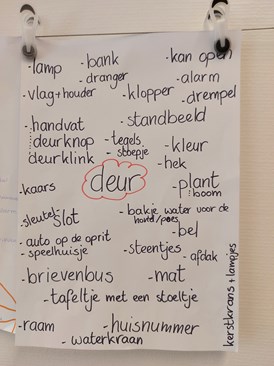 - lamp
- bank
- dranger
- kan open
- alarm
- vlag + houder
- klopper
- drempel
- standbeeld
- handvat
deurknop
deurklink
- tegels
- stoepje
- kleur
- hek
deur
- kaars
- plant
boom
- sleutel
slot
- bakje water voor de
hond/poes
- bel
- auto op de oprit
- speelhuisje
- steentjes
- afdak
- brievenbus
- mat
- tafeltje met een stoeltje
- raam
- huisnummer
- waterkraan
kerstkrans + lampjes